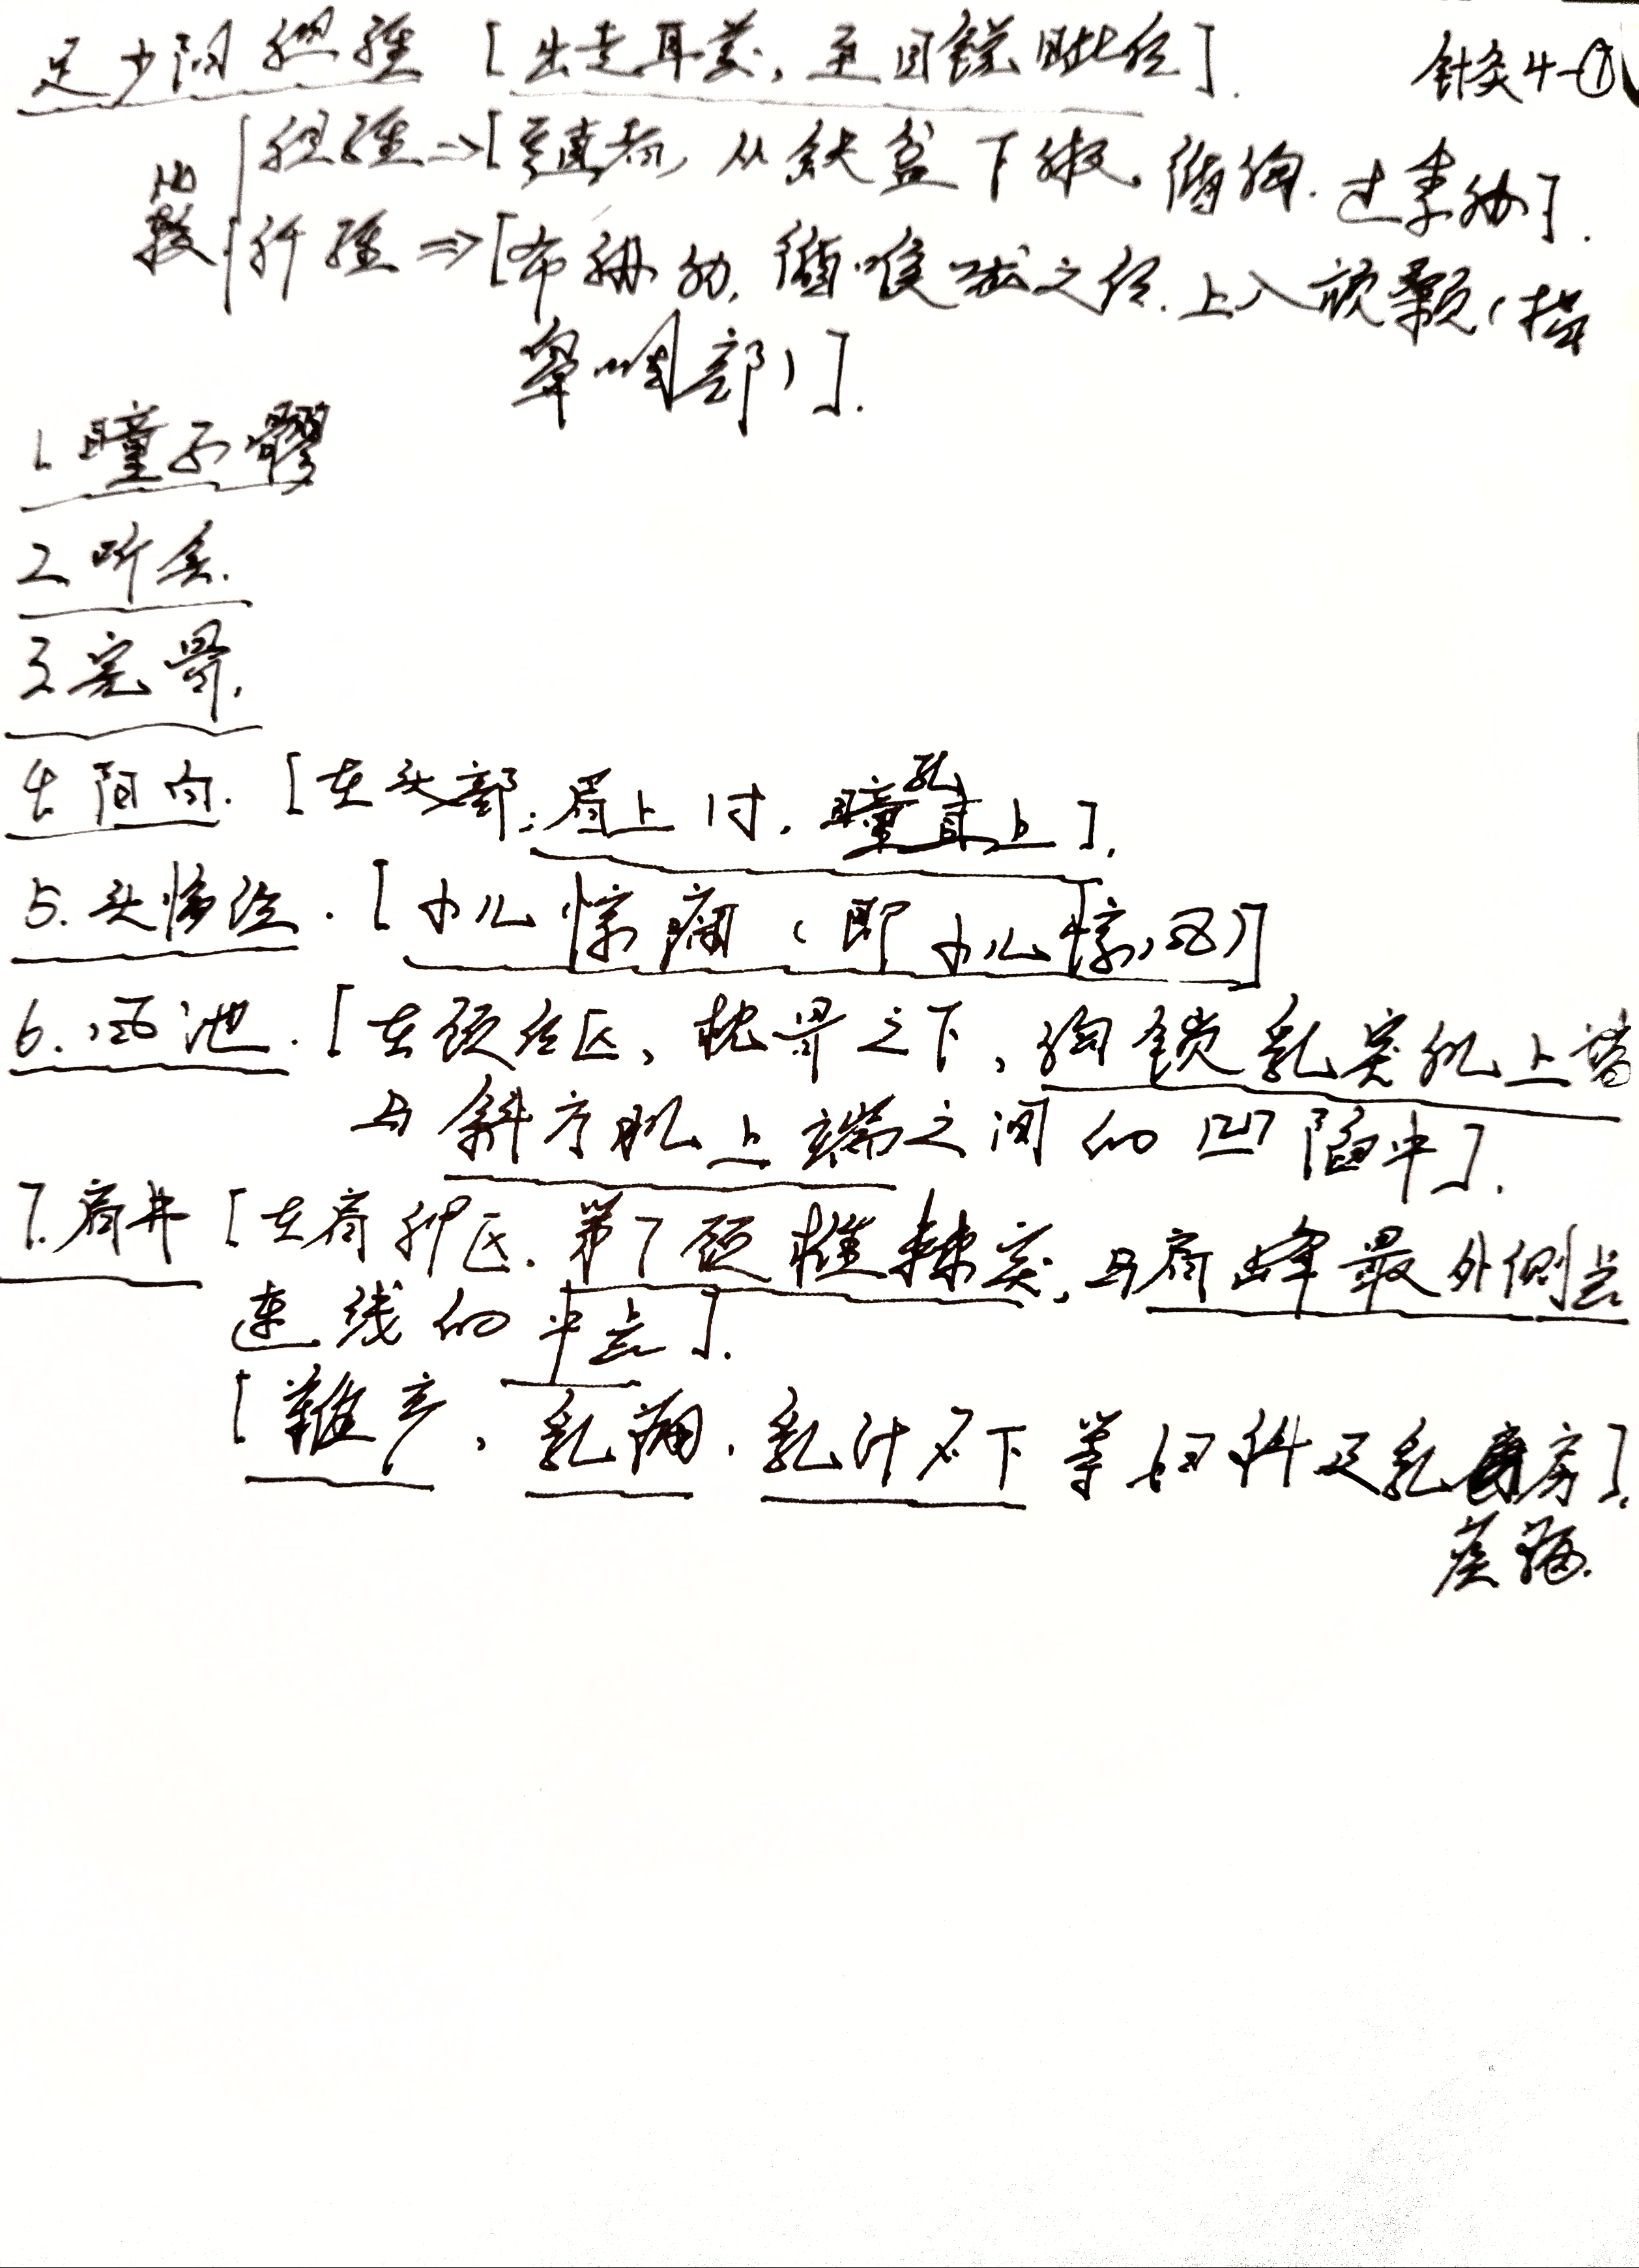 足少阳胆經 [出走耳前, 至目锐眦后]. 针灸4-①
胆經⇒[其直者, 从缺盆下腋, 循胸. 过季胁].
比较
肝經⇒[布胁肋, 循喉咙之后. 上入颃颡(指
鼻咽部)].
1. 瞳子髎
2. 听会.
3. 完骨.
4. 阳白. [在头部: 眉上1寸, 瞳孔直上].
5. 头临泣. [小儿惊痫(即小儿惊风)]
6. 风池. [在颈后区, 枕骨之下, 胸锁乳突肌上端
与斜方肌上端之间的凹陷中].
7. 肩井 [在肩胛区. 第7颈椎棘突, 与肩峰最外侧点
连线的中点].
[難产, 乳痈. 乳汁不下等妇科及乳房].
疾病.